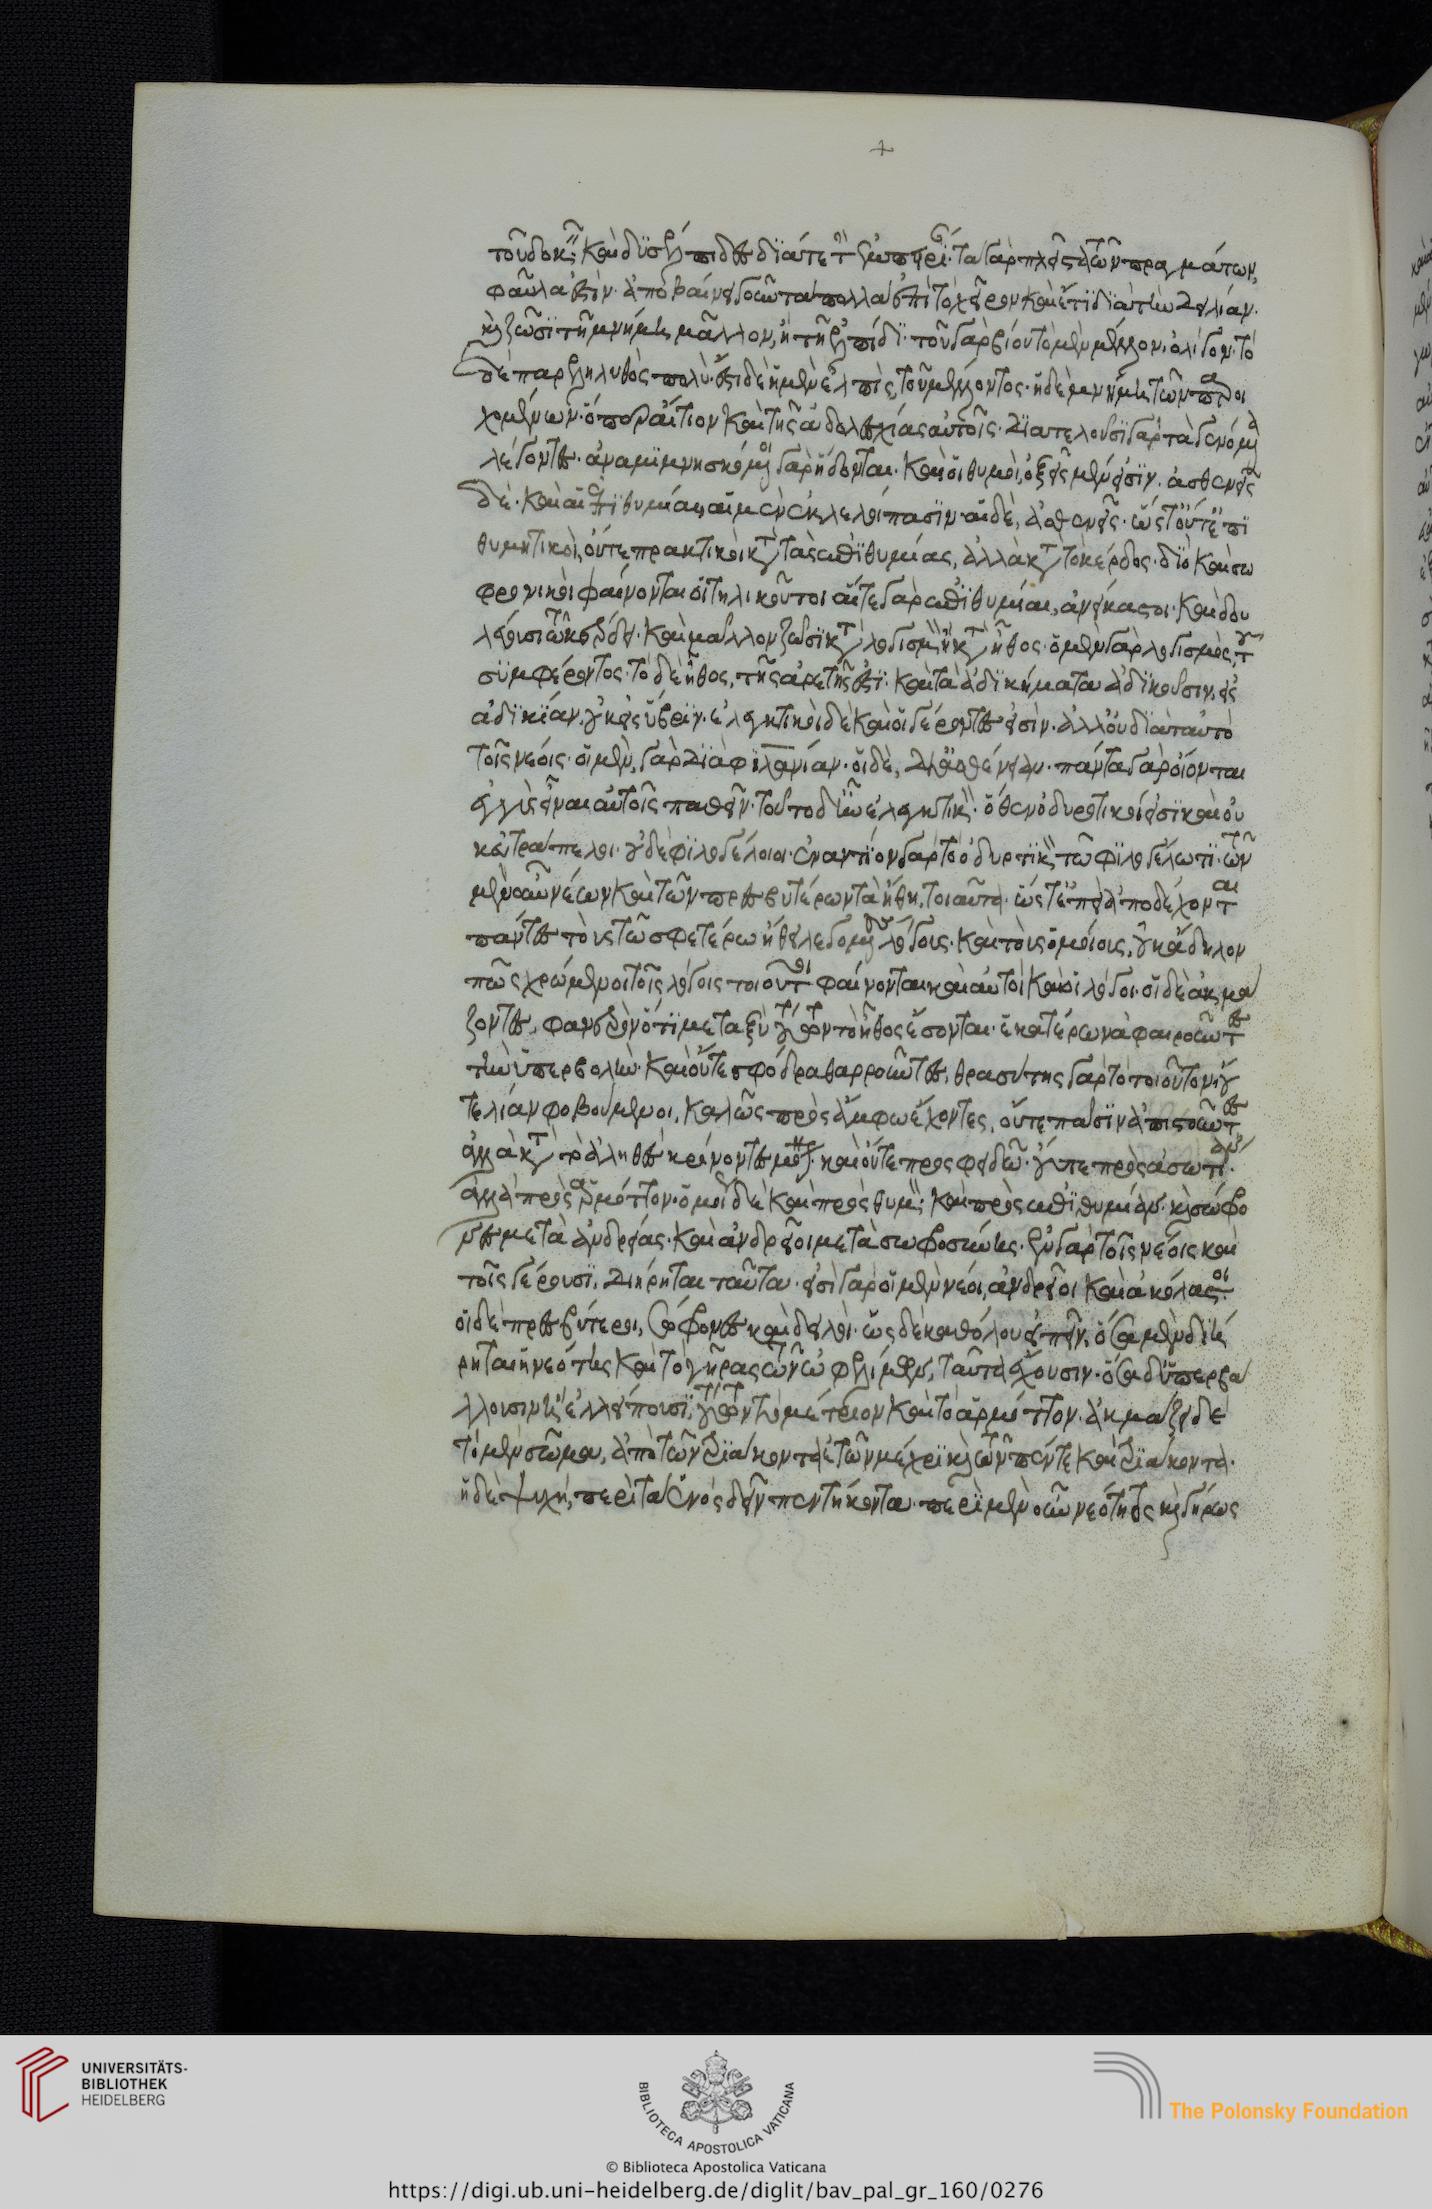 τοῦ δοκεῖν· καὶ δυσέλπιδες διά τε τὴν ἐμπειρίαν· τὰ γὰρ πλείω τῶν πραγμάτων,
φαῦλα ἐστὶν· ἀποβαίνει γοῦν τὰ πολλὰ ἐπὶ τὸ χεῖρον καὶ ἔτι διὰ τὴν δειλίαν·
καὶ ζῶσι τῇ μνήμῃ μᾶλλον, ἢ τῇ ἐλπίδι· τοῦ γὰρ βίου τὸ μὲν μέλλον, ὀλίγον· τὸ
δὲ παρεληλυθὸς πολύ· ἔστι δὲ ἡ μὲν ἐλπὶς, τοῦ μέλλοντος· ἡ δὲ μνήμη τῶν παροι
χομένων· ὅπερ αἴτιον καὶ τῆς ἀδολεσχίας αὐτοῖς· διατελοῦσι γὰρ τὰ γενόμενα
λέγοντες· ἀναμιμνησκόμενοι γὰρ ἥδονται· καὶ οἱ θυμοὶ, ὀξεῖς μὲν εἰσὶν· ἀσθενεῖς
δέ· καὶ αἱ ἐπιθυμίαι, αἱ μὲν ἐκλελοίπασιν αἱ δὲ, ἀσθενεῖς· ὥστ' οὔτ' ἐπι
θυμητικοὶ, οὔτε πρακτικοὶ κατὰ τὰς ἐπιθυμίας, ἀλλὰ κατὰ τὸ κέρδος· διὸ καὶ σω
φρονικοὶ φαίνονται οἱ τηλικοῦτοι αἵ τε γὰρ ἐπιθυμίαι, ἀνείκασι· καὶ δου
λεύουσι τῷ κέρδει· καὶ μᾶλλον ζῶσι κατὰ λογισμὸν ἢ κατὰ ἦθος· ὁ μὲν γὰρ λογισμὸς, τοῦ
συμφέροντος· τὸ δὲ ἦθος, τῆς ἀρετῆς ἐστί· καὶ τὰ ἀδικήματα ἀδικοῦσιν, εἰς
ἀδικίαν, οὐκ εἰς ὕβριν· ἐλεητικοὶ δὲ καὶ οἱ γέροντες εἰσὶν· ἀλλ' οὐ διὰ ταὐτὸ
τοῖς νέοις· οἱ μὲν, γὰρ διὰ φιλανίαν· οἱ δὲ, δι' ἀσθένειαν· πάντα γὰρ οἴονται
ἐγγὺς εἶναι αὐτοῖς παθεῖν· τοῦτο δ' ἦν ἐλεητικὸν· ὅθεν ὀδυρτικοί εἰσι καὶ οὐ
κ εὐτράπελοι· οὐδὲ φιλογέλοιοι· ἐναντίον γὰρ τὸ ὀδυρτικὸν τῷ φιλογέλωτι· τῶν
μὲν οὖν νέων καὶ τῶν πρεσβυτέρων τὰ ἤθη, τοιαῦτα· ὥστ' ἐπεὶ ἀποδέχονται
πάντες τοὺς τῷ σφετέρω ἤθει λεγομένους λόγους· καὶ τοὺς ὁμοίους, οὐκ ἄδηλον
πῶς χρώμενοι τοῖς λόγοις τοιοῦτοι φαίνονται καὶ αὐτοὶ καὶ οἱ λόγοι· οἱ δὲ ἀκμά
ζοντες, φανερὸν ὅτι μεταξὺ τούτων τὸ ἦθος ἔσονται· ἑκατέρων ἀφαιροῦντες
τὴν ὑπερβολὴν· καὶ οὔτε σφόδρα θαρροῦντες, θρασύτης γὰρ τὸ τοιοῦτον· οὔ
τε λίαν φοβούμενοι, καλῶς πρὸς ἄμφω ἔχοντες, οὔτε πᾶσιν ἀπιστοῦντες
ἀλλὰ κατὰ τὸ ἀληθὲς κρίνοντες μᾶλλον· καὶ οὔτε πρὸς φειδὼ· οὔτε πρὸς ἀσωτίαν·
ἀλλὰ πρὸς τὸ ἁρμόττον· ὁμοίως δὲ καὶ πρὸς θυμὸν· καὶ πρὸς ἐπιθυμίαν· καὶ σώφρο
νες μετὰ ἀνδρείας· καὶ ἀνδρεῖοι μετὰ σωφροσύνης· ἐν γὰρ τοῖς νέοις καὶ
τοῖς γέρουσι, διῄρηται ταῦτα· εἰσὶ γὰρ οἱ μὲν νέοι, ἀνδρεῖοι καὶ ἀκόλαστοι·
οἱ δὲ πρεσβύτεροι, σώφρονες καὶ δειλοὶ· ὡς δὲ καθόλου εἰπεῖν, ὅσα μὲν διῄ
ρηται ἡ νεότης καὶ τὸ γῆρας τῶν ὠφελίμων, ταῦτα ἔχουσιν· ὅσα δ' ὑπερβά
λλουσιν ἢ ἐλλείπουσι, τούτων τὸ μέτριον καὶ τὸ ἁρμόττον· ἀκμάζει δὲ
τὸ μὲν σῶμα, ἀπὸ τῶν τριάκοντα ἐτῶν μέχρι καὶ τῶν πέντε καὶ τριάκοντα·
ἡ δὲ ψυχὴ, περὶ τὰ ἑνὸς δεῖν πεντήκοντα· περὶ μὲν οὖν νεότητος καὶ γήρως
UNIVERSITÄTS-
BIBLIOTHEK
HEIDELBERG
BIBLIOTECA APOSTOLICA VATICANA
The Polonsky Foundation
© Biblioteca Apostolica Vaticana
https://digi.ub.uni-heidelberg.de/diglit/bav_pal_gr_160/0276